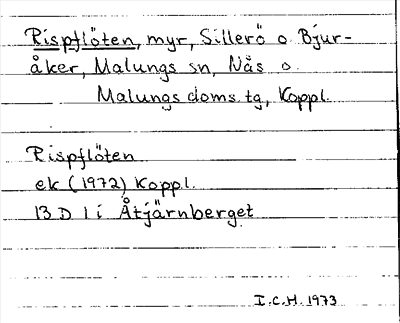 Rispflöten, myr, Sillerö o Bjur-
åker, Malungs sn, Nås o
Malungs doms. tg, Koppl.
Rispflöten
ek (1972) Koppl.
13 D 1 i Åtjärnberget
I.C.H. 1973